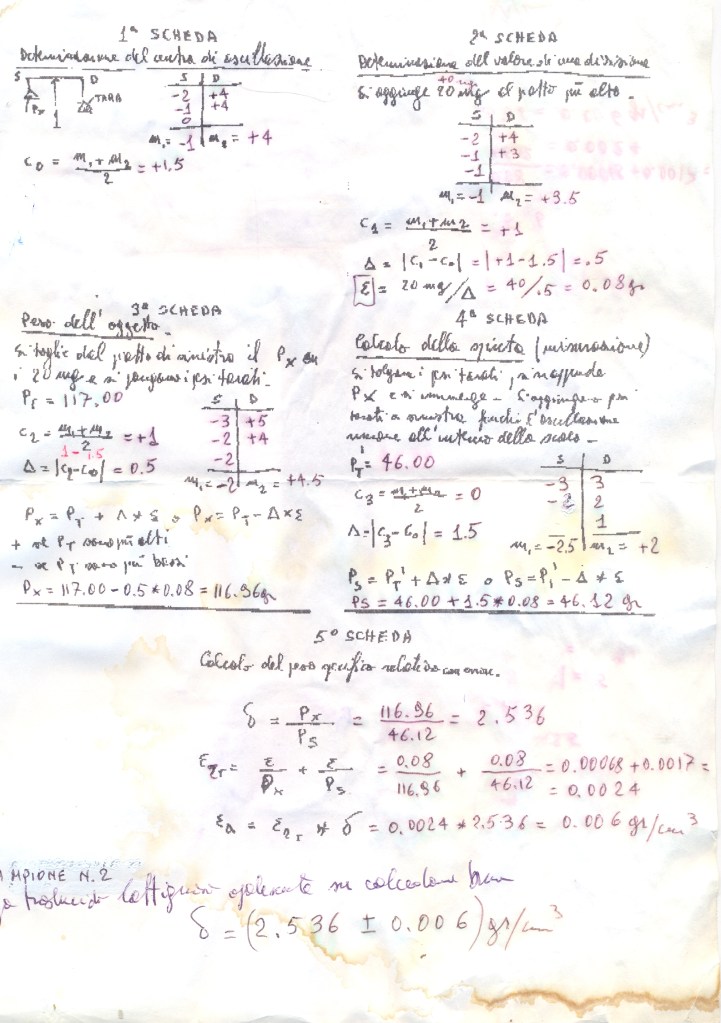 1ª SCHEDA
Determinazione del centro di oscillazione
S D
Px TARA
S D
-2 +4
-1 +4
0
m₁= -1 m₂ = +4
C₀ = m₁+m₂/2 = +1.5
2ª SCHEDA
Determinazione del valore di una divisione
40 mg
Si aggiunge 20 mg al piatto più alto.
S D
-2 +4
-1 +3
-1
m₁= -1 m₂= +3.5
C₁ = m₁+m₂/2 = +1
Δ = |C₁-C₀| = |+1-1.5| = .5
Ɛ = 20 mg/Δ = 40/.5 = 0.08 gr
3ª SCHEDA
Peso dell'oggetto.
Si toglie dal piatto di sinistra il Px
i 20 mg e si pongono i pesi tarati.
PT = 117.00
S D
-3 +5
-2 +4
-2
m₁= -2 m₂= +4.5
C₂ = m₁+m₂/2 = +1
1-1.5
Δ = |C₂-C₀| = 0.5
Px = PT + Δ*Ɛ o Px = PT - Δ*Ɛ
+ se PT sono più alti
- se PT sono più bassi
Px = 117.00 - 0.5*0.08 = 116.96 gr
4ª SCHEDA
Calcolo della spinta (misurazione)
Si tolgono i pesi tarati, si riappende
Px e si immerge - S'aggiungono pesi
tarati a sinistra finché l'oscillazione
rimane all'interno della scala -
P'T = 46.00
S D
-3 3
-2 2
1
m₁= -2.5 m₂= +2
C₃ = m₁+m₂/2 = 0
Δ = |C₃-C₀| = 1.5
PS = PT' + Δ*Ɛ o PS = PT' - Δ*Ɛ
PS = 46.00 + 1.5*0.08 = 46.12 gr
5º SCHEDA
Calcolo del peso specifico relativo con errore.
δ = Px/PS = 116.96/46.12 = 2.536
Ɛ2r = Ɛ/Px + Ɛ/PS = 0.08/116.96 + 0.08/46.12 = 0.00068 + 0.0017 =
= 0.0024
Ɛa = Ɛ2r * δ = 0.0024 * 2.536 = 0.006 gr/cm³
MPIONE N.2
traslucido lattiginoso opalescente su calcedonio
δ = (2.536 ± 0.006) gr/cm³